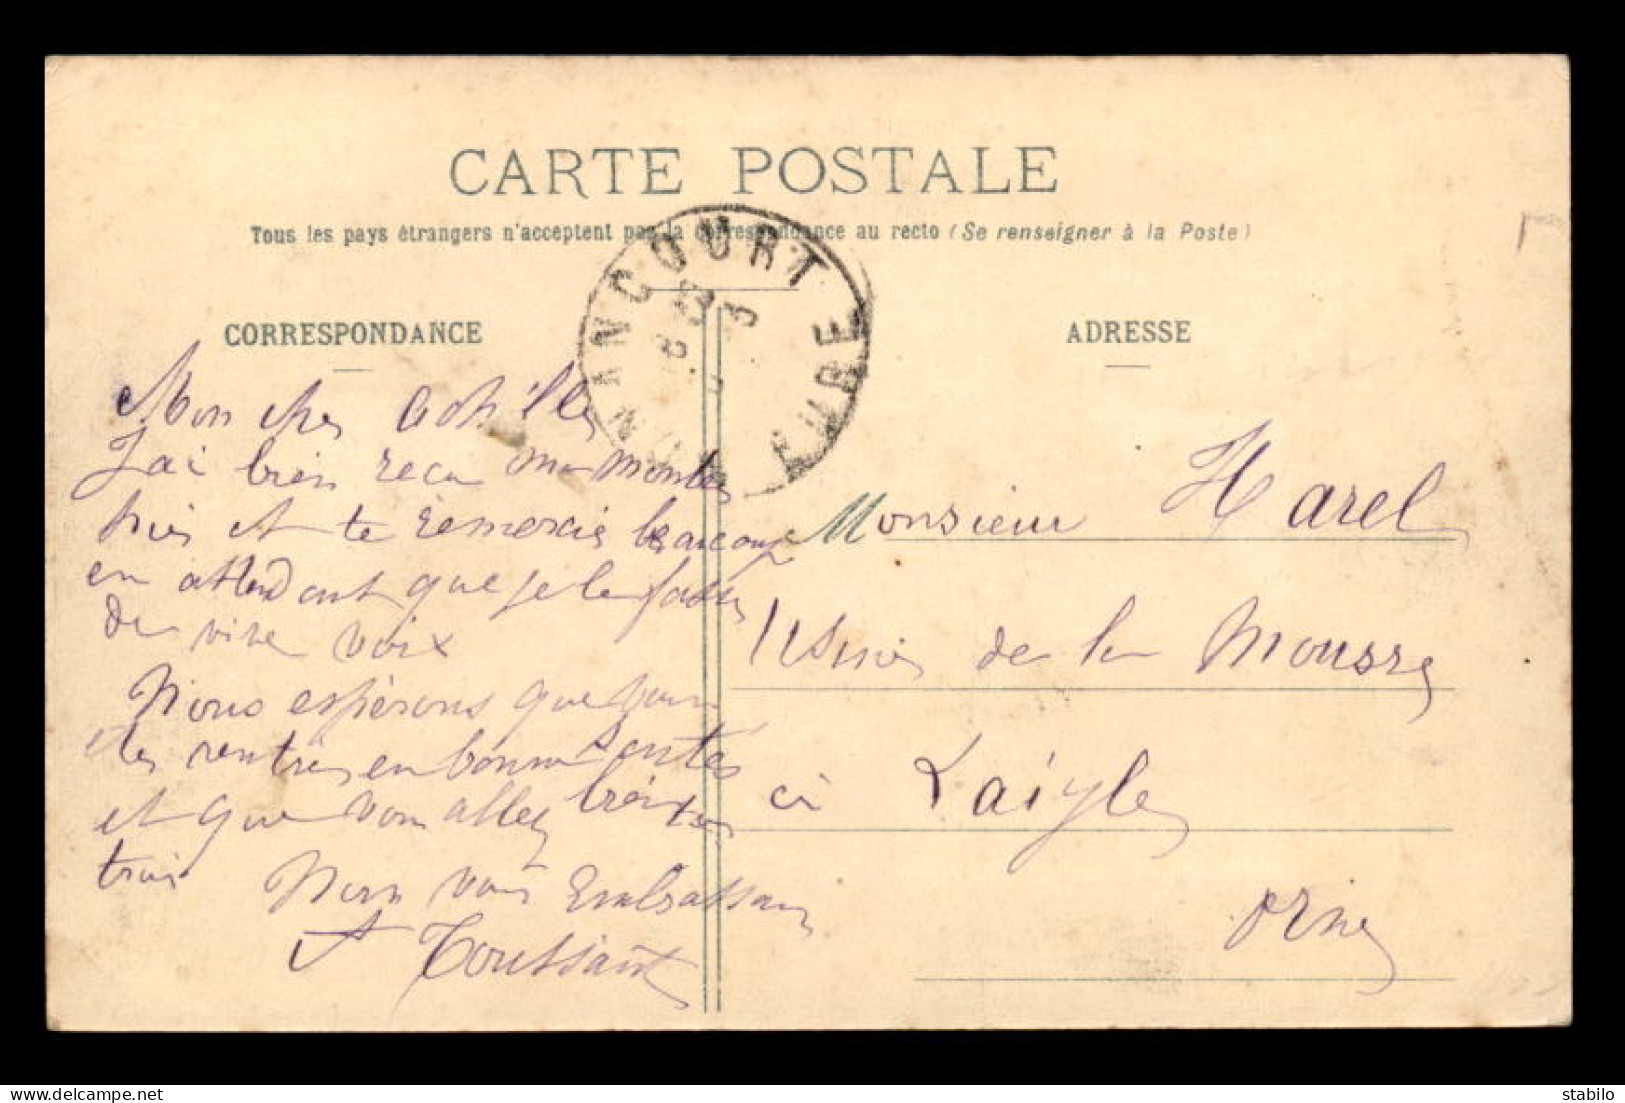 CARTE POSTALE
Tous les pays étrangers n'acceptent pas la correspondance au recto (Se renseigner à la Poste)
CORRESPONDANCE
Mon cher Achille
J'ai bien recu ma montre
hier et te remercie beaucoup
en attendant que je le fasse
de vive voix
Nous espérons que
rentrés en bonne santés
et que vous allez bien tous
trois
Nous vous Embrassons
A Toussaint
NANCOURT
EURE
ADRESSE
Monsieur Harel
Usine de la Mousse
à Laigle
Orne
delcampe.net
stabilo